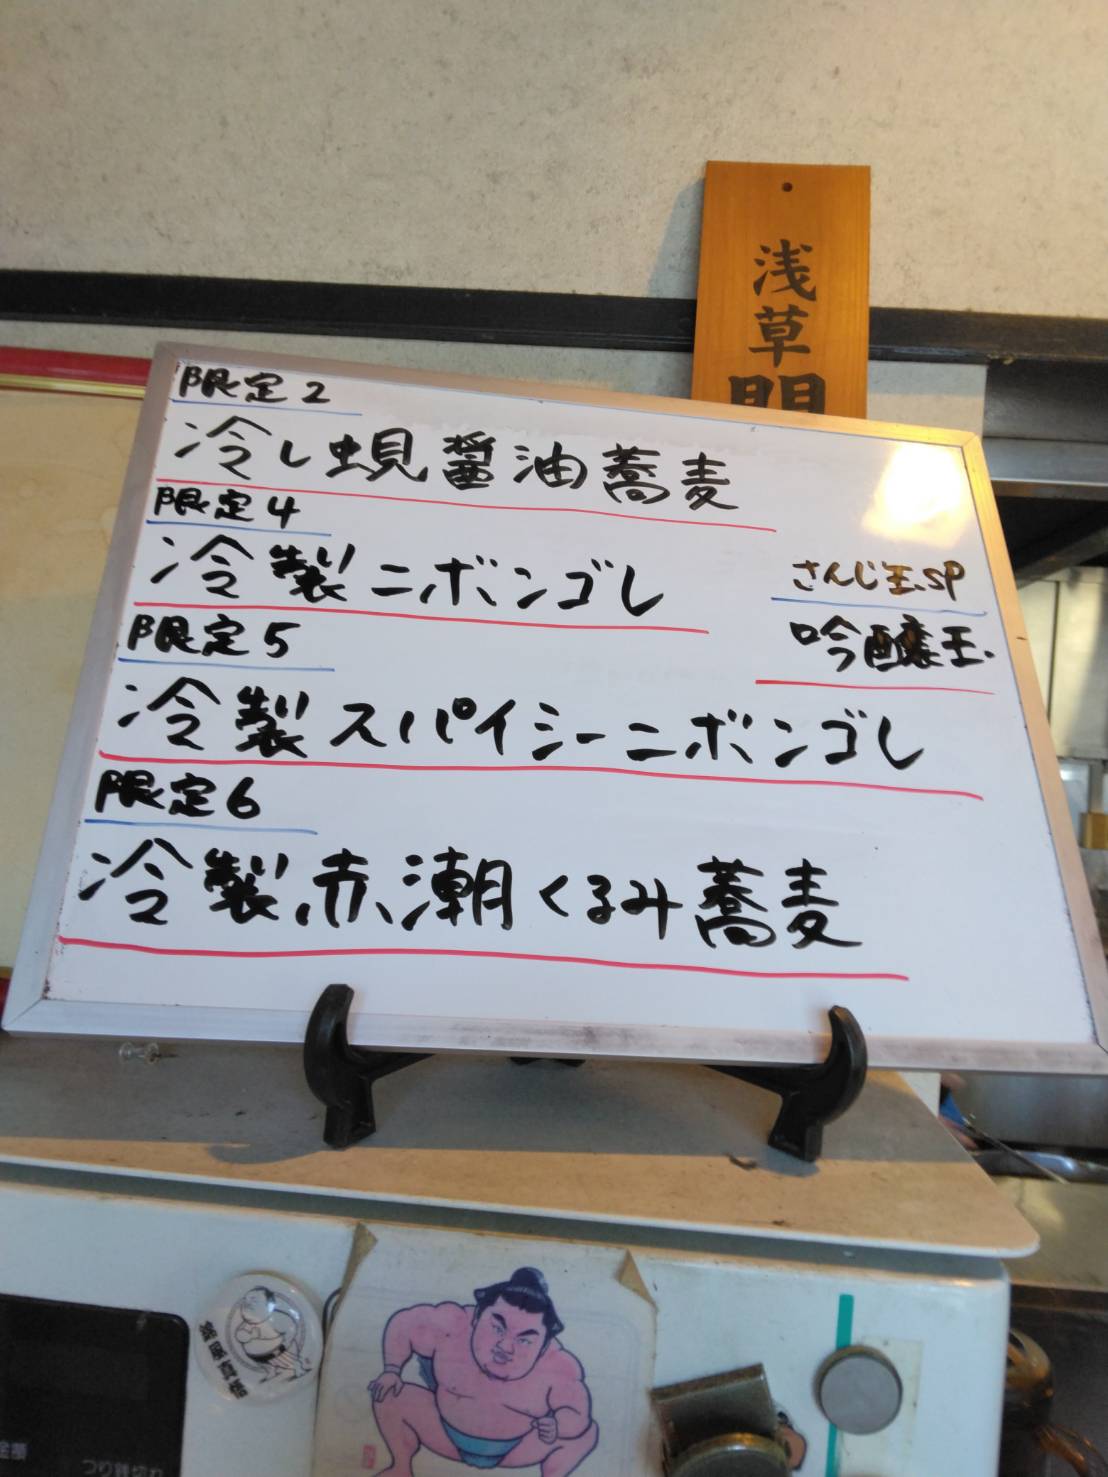 浅草開
限定2
冷し蜆醤油蕎麦
限定4
冷製ニボンゴレ
さんじ玉SP
吟醸玉
限定5
冷製スパイシーニボンゴレ
限定6
冷製赤潮くるみ蕎麦
つり銭切れ